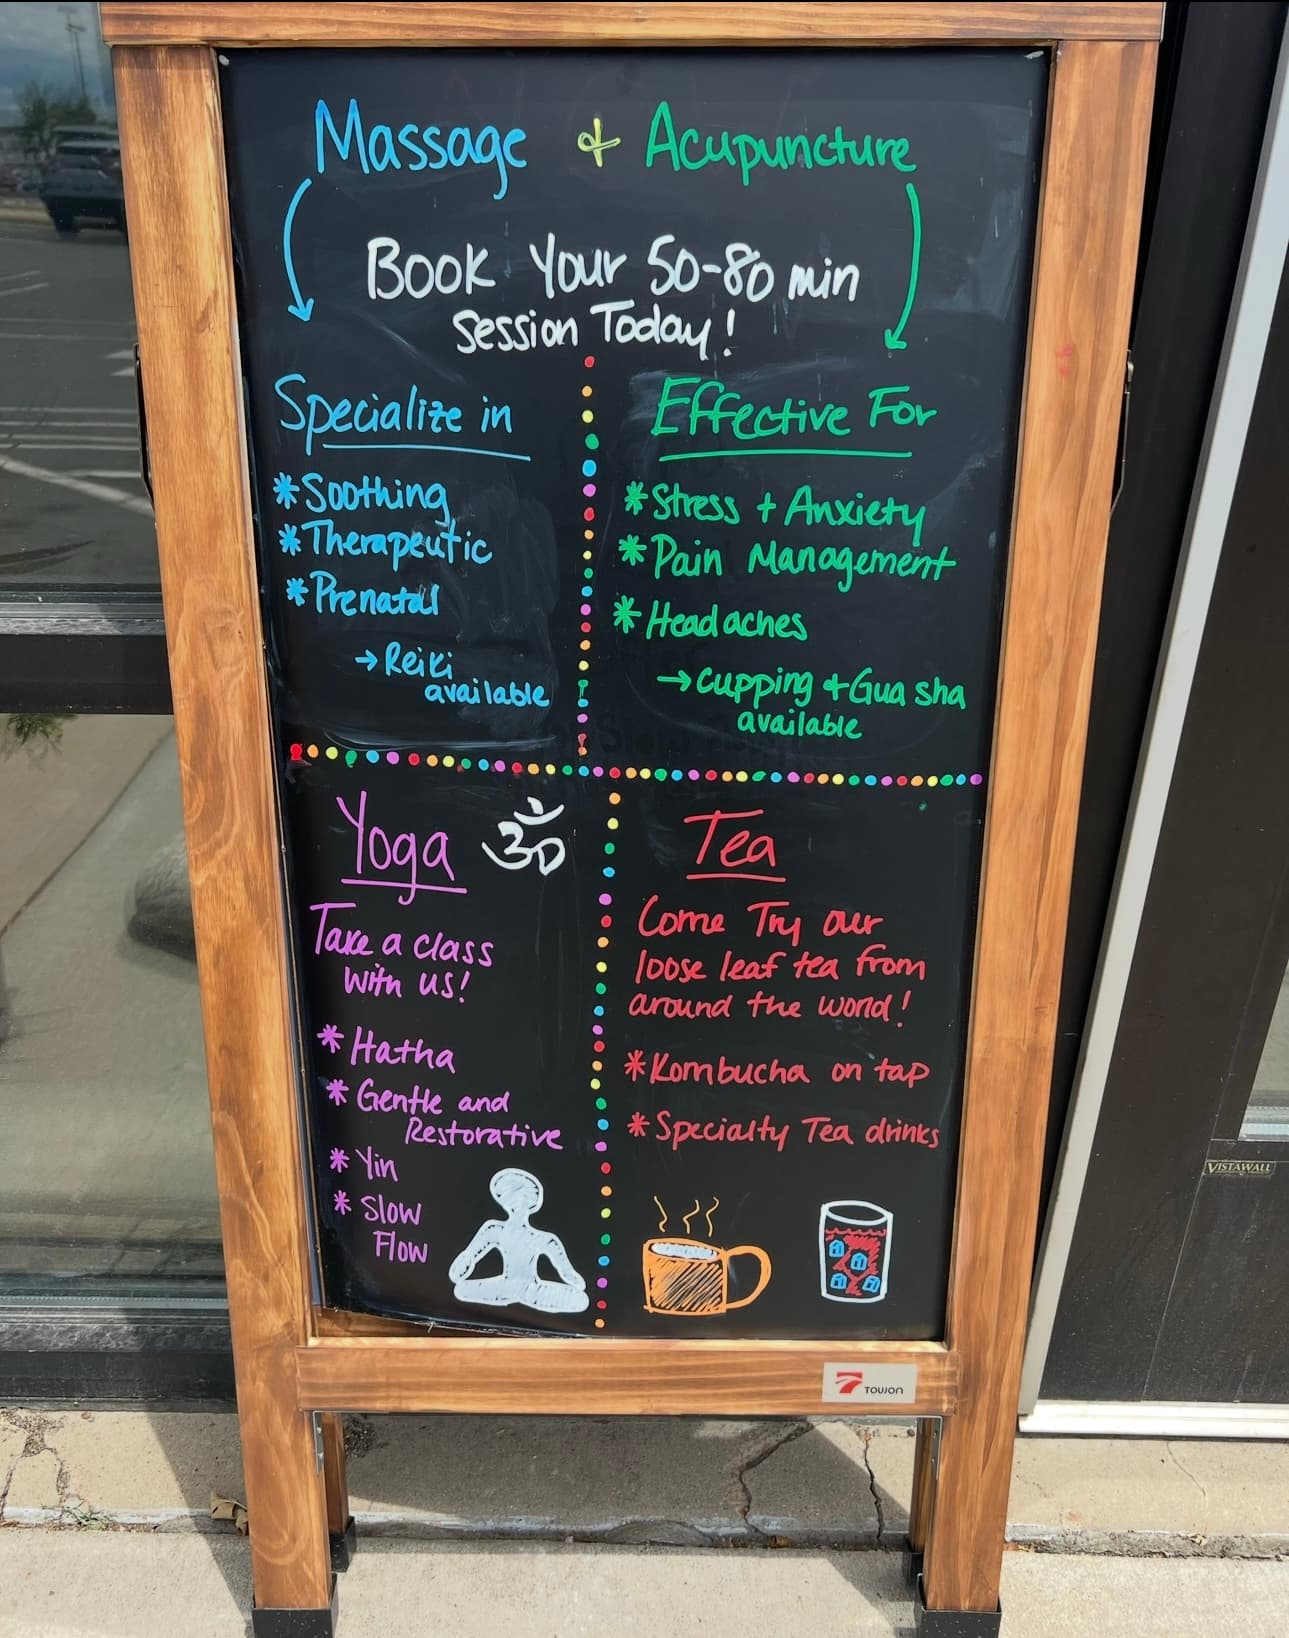 Massage & Acupuncture
Book Your 50-80 min
Session Today!
Specialize in
* Soothing
* Therapeutic
* Prenatal
→ Reiki
available
Effective For
* Stress + Anxiety
* Pain Management
* Headaches
→ Cupping + Gua sha
available
Yoga ॐ
Take a class
with us!
* Hatha
* Gentle and
Restorative
* Yin
* Slow
Flow
Tea
Come Try our
loose leaf tea from
around the world!
* Kombucha on tap
* Specialty Tea drinks
TOWON
VISTAWALL